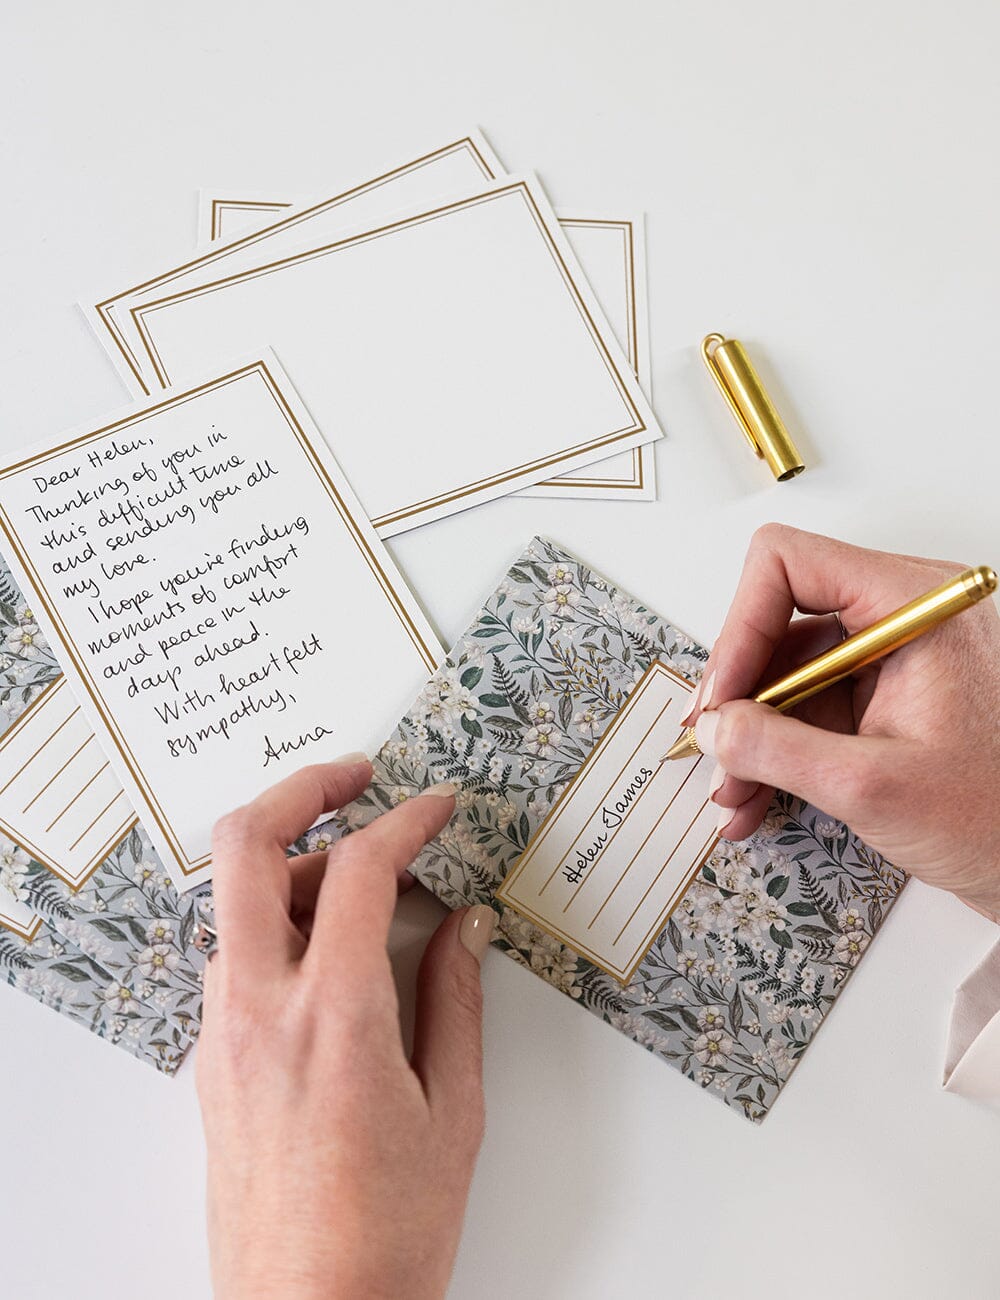 Dear Helen,
Thinking of you in
this difficult time
and sending you all
my love.
I hope you're finding
moments of comfort
and peace in the
days ahead.
With heartfelt
sympathy,
Anna
Helen James